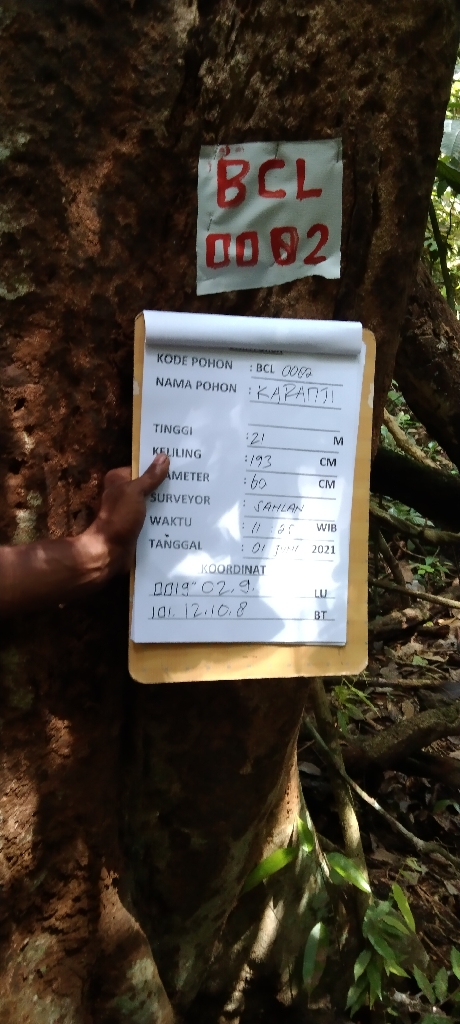 BCL
0002
KODE POHON : BCL 0002
NAMA POHON : KARANJI
TINGGI : 21 M
KELILING : 193 CM
DIAMETER : 60 CM
SURVEYOR : SAHLAN
WAKTU : 11 : 25 WIB
TANGGAL : 01 JUNI 2021
KOORDINAT
0019 02.9. LU
101. 12.10.8 BT